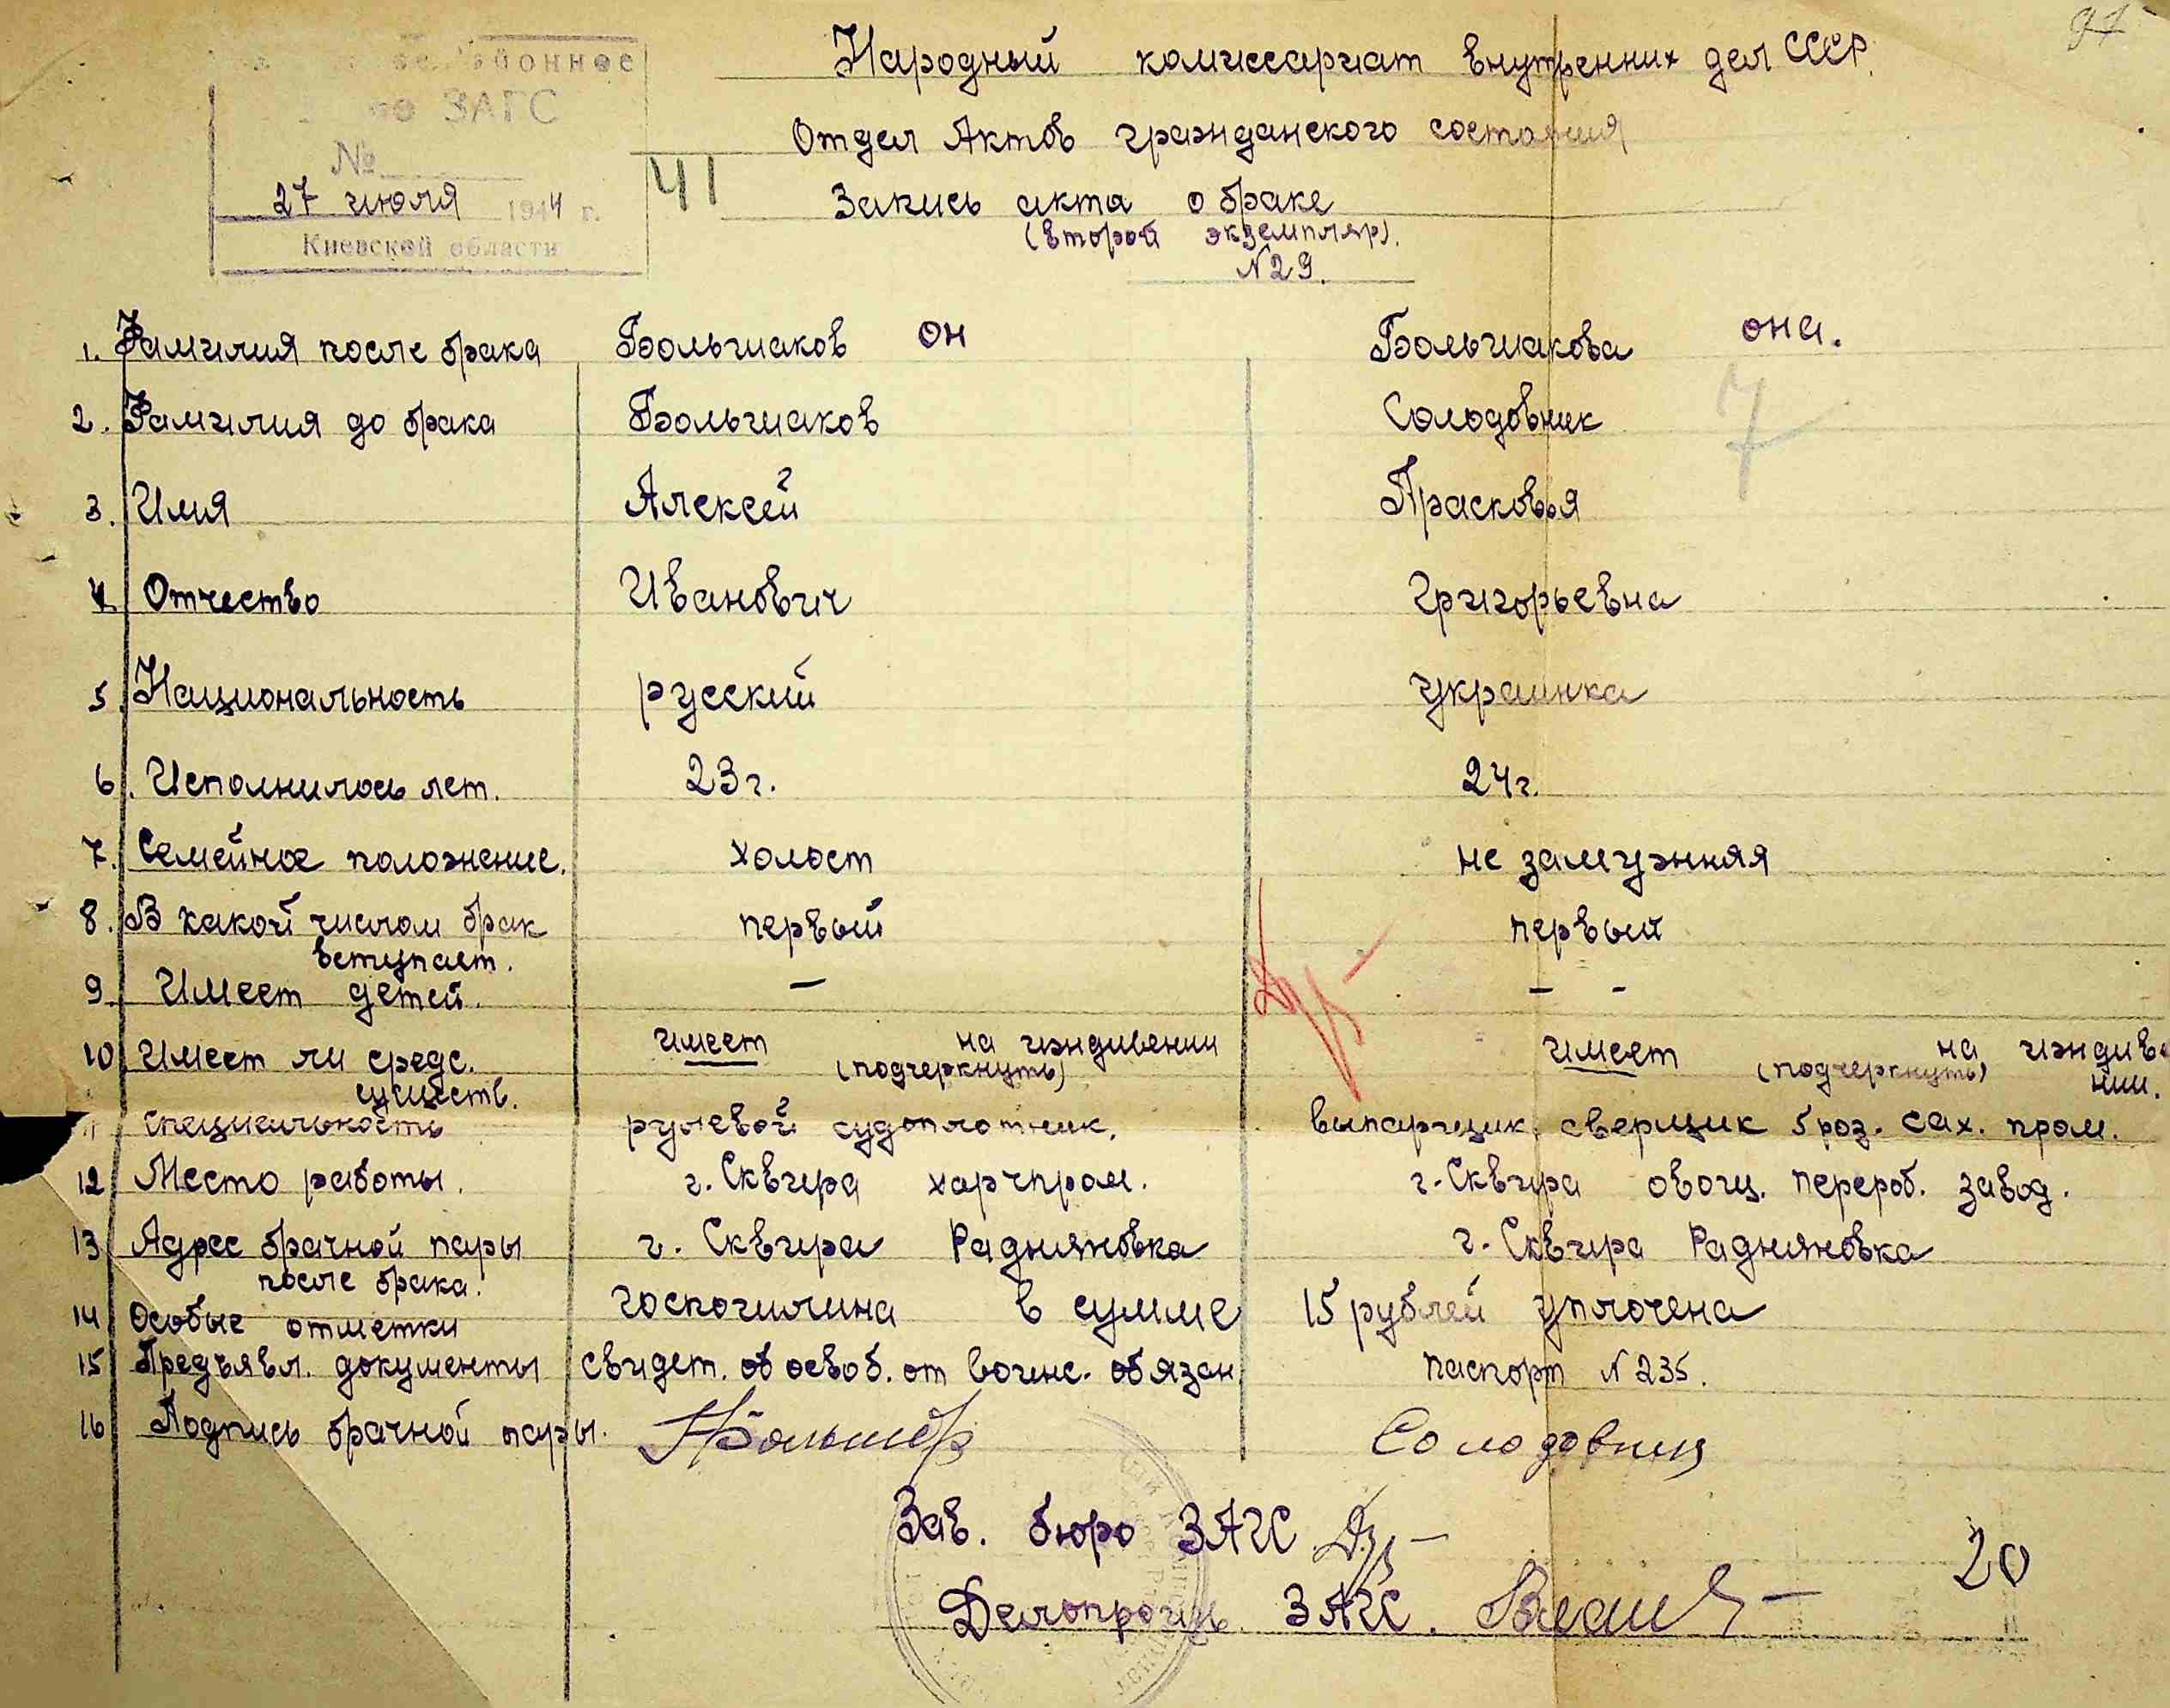 97
Народный комиссариат внутренних дел СССР.
Отдел Актов гражданского состояния
ЗАГС
№
27 июля 1944 г.
Киевской области
41
Запись акта о браке
(второй экземпляр).
N 29.
он она.
1. Фамилия после брака Большаков Большакова
2. Фамилия до брака Большаков Солодовник
7
3. Имя Алексей Прасковья
4 Отчество Иванович Григорьевна
5. Национальность русский украинка
6. Исполнилось лет. 23 г. 24 г.
7. Семейное положение. холост не замужняя
8. В какой числом брак первый первый
вступает.
9. Имеет детей. – – -
10 Имеет ли средс. имеет на иждивении имеет на иждиве
сущеть. (подчеркнуть) (подчеркнуть) нии.
11 специальность рулевой судоплотник. выпарщик, сверщик 5 роз. сах. пром.
12 Место работы. г. Сквира харчпром. г. Сквира овощ. перероб. завод.
13 Адрес брачной пары г. Сквира Радняновка г. Сквира Радняновка
после брака.
14 Особые отметки госпошлина в сумме 15 рублей уплочена
15 Предъявл. документы свидет. об освоб. от воинс. обязан. паспорт N 235.
16 Подпись брачной пары. Солодовник
Зав. бюро ЗАГС
20
Делопроизв. ЗАГС.